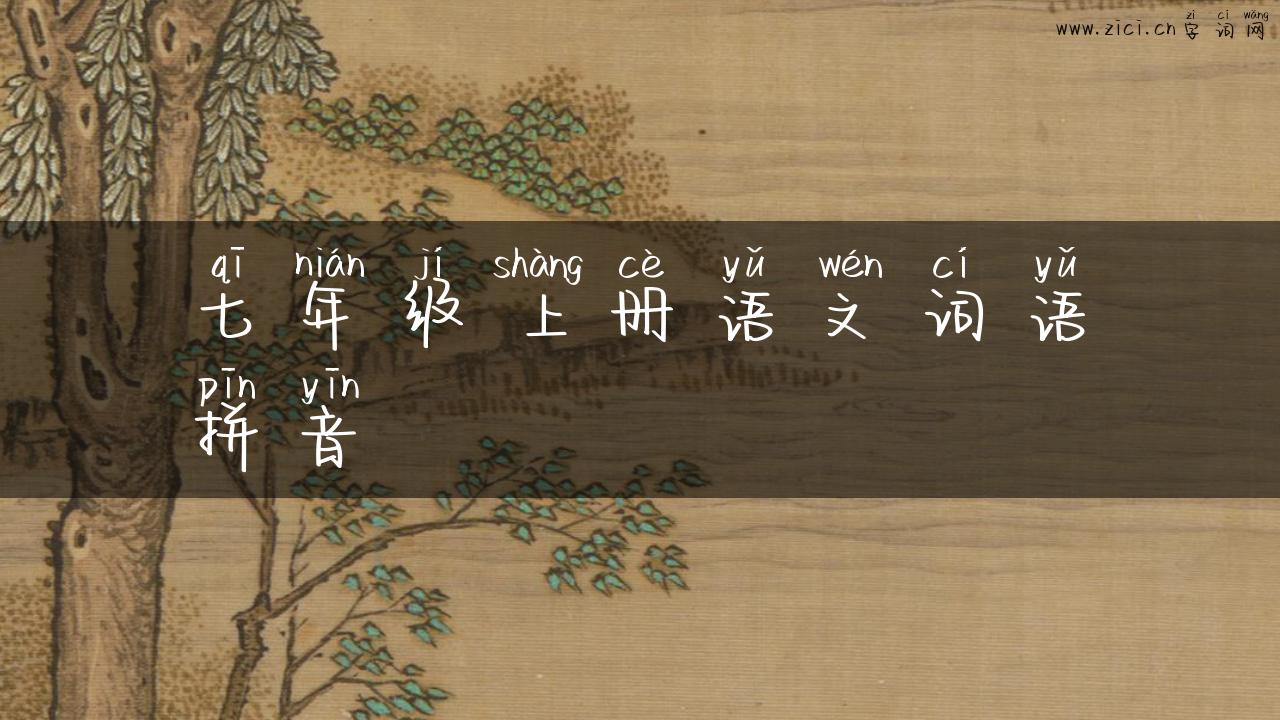 zì cí wǎng
www.zici.cn 字词网
qī nián jí shàng cè yǔ wén cí yǔ
七年级上册语文词语
pīn yīn
拼音